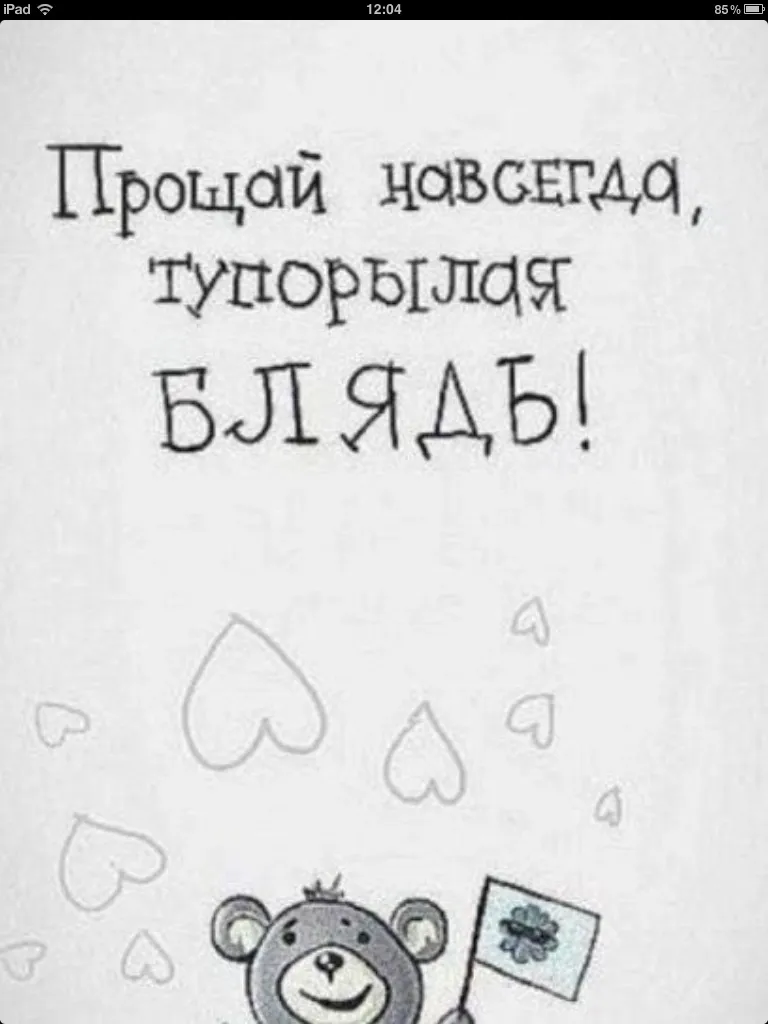 iPad 12:04 85%
Прощай навсегда,
тупорылая
БЛЯДЬ!